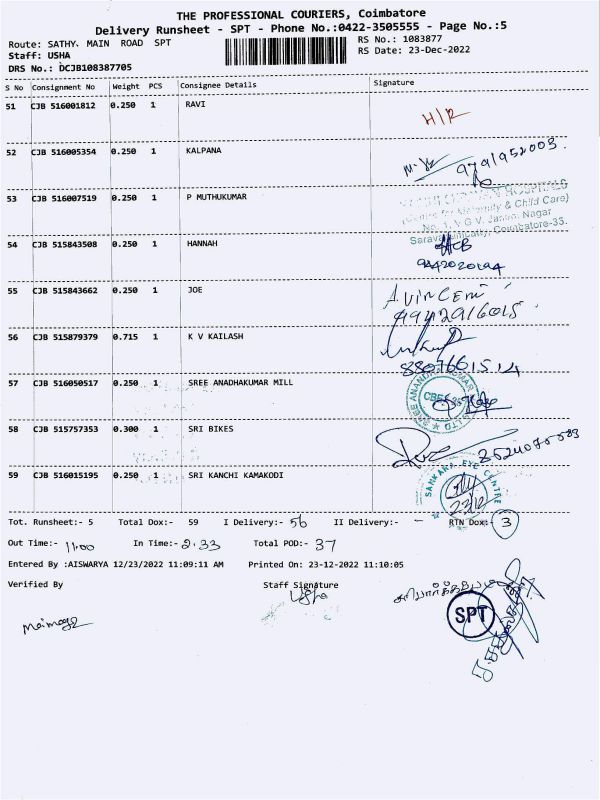 THE PROFESSIONAL COURIERS, Coimbatore
Delivery Runsheet - SPT - Phone No.:0422-3505555 - Page No.:5
Route: SATHY. MAIN ROAD SPT
RS No.: 1083877
Staff: USHA
RS Date: 23-Dec-2022
DRS No.: DCJB108387705
S No Consignment No Weight PCS Consignee Details Signature
51 CJB 516001812 0.250 1 RAVI H/R
52 CJB 516005354 0.250 1 KALPANA 9791952003.
53 CJB 516007519 0.250 1 P MUTHUKUMAR
(Centre for Maternity & Child Care)
No. 1, V G V. Nagar
Coimbatore-35.
54 CJB 515843508 0.250 1 HANNAH
9442020194
55 CJB 515843662 0.250 1 JOE A.VINCENT
9942916015
56 CJB 515879379 0.715 1 K V KAILASH
8807661514
57 CJB 516050517 0.250 1 SREE ANADHAKUMAR MILL
58 CJB 515757353 0.300 1 SRI BIKES
59 CJB 516015195 0.250 1 SRI KANCHI KAMAKODI SANKARA EYE CENTRE
23/12
Tot. Runsheet:- 5 Total Dox:- 59 I Delivery:- 56 II Delivery:- - RTN Dox:- 3
Out Time:- 11:00 In Time:- 2.33 Total POD:- 37
Entered By :AISWARYA 12/23/2022 11:09:11 AM Printed On: 23-12-2022 11:10:05
Verified By Staff Signature
Usha
SPT